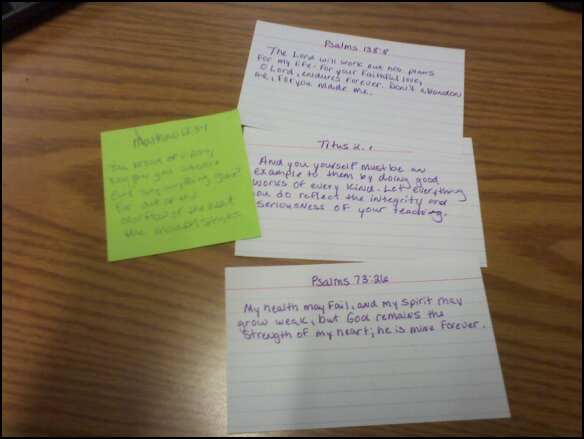 Psalms 138:8
The Lord will work out his plans
for my life - for your faithful love,
O Lord, endures forever. Don't abandon
me, for you made me.
Titus 2:
And you yourself must be an
example to them by doing good
works of every kind. Let everything
you do reflect the integrity and
seriousness of your teaching.
Psalms 73:26
My health may fail, and my spirit may
grow weak, but God remains the
strength of my heart; he is mine forever.
You brood of
you
For out of the
of the heart
the mouth